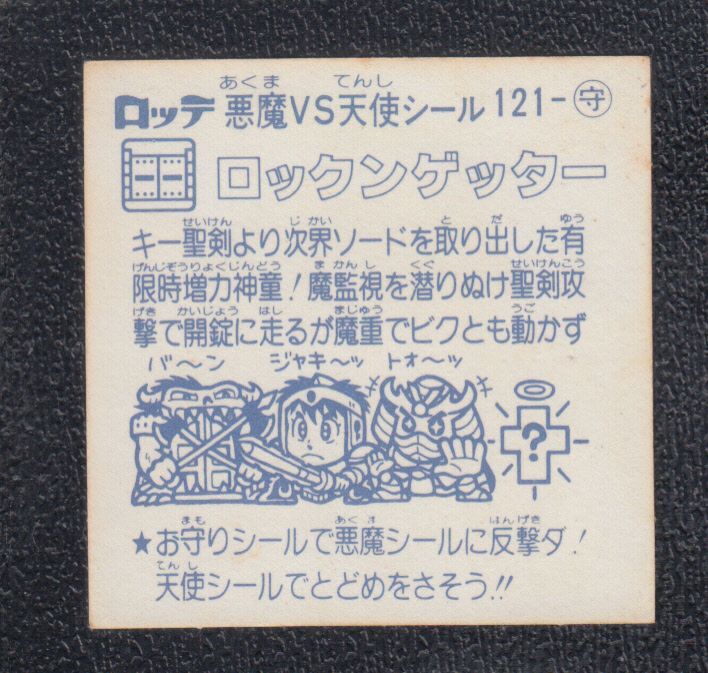 ロッテ 悪魔VS天使シール 121-守
あくま てんし
ロックンゲッター
せいけん じかい と だ ゆう
キー聖剣より次界ソードを取り出した有
げんじぞうりょくじんどう まかんし くぐ せいけんこう
限時増力神童!魔監視を潜りぬけ聖剣攻
げき かいじょう はし まじゅう うご
撃で開錠に走るが魔重でビクとも動かず
バ〜ン ジャキ〜ッ トォ〜ッ
?
まも あくま はんげき
★お守りシールで悪魔シールに反撃ダ!
てんし
天使シールでとどめをさそう!!